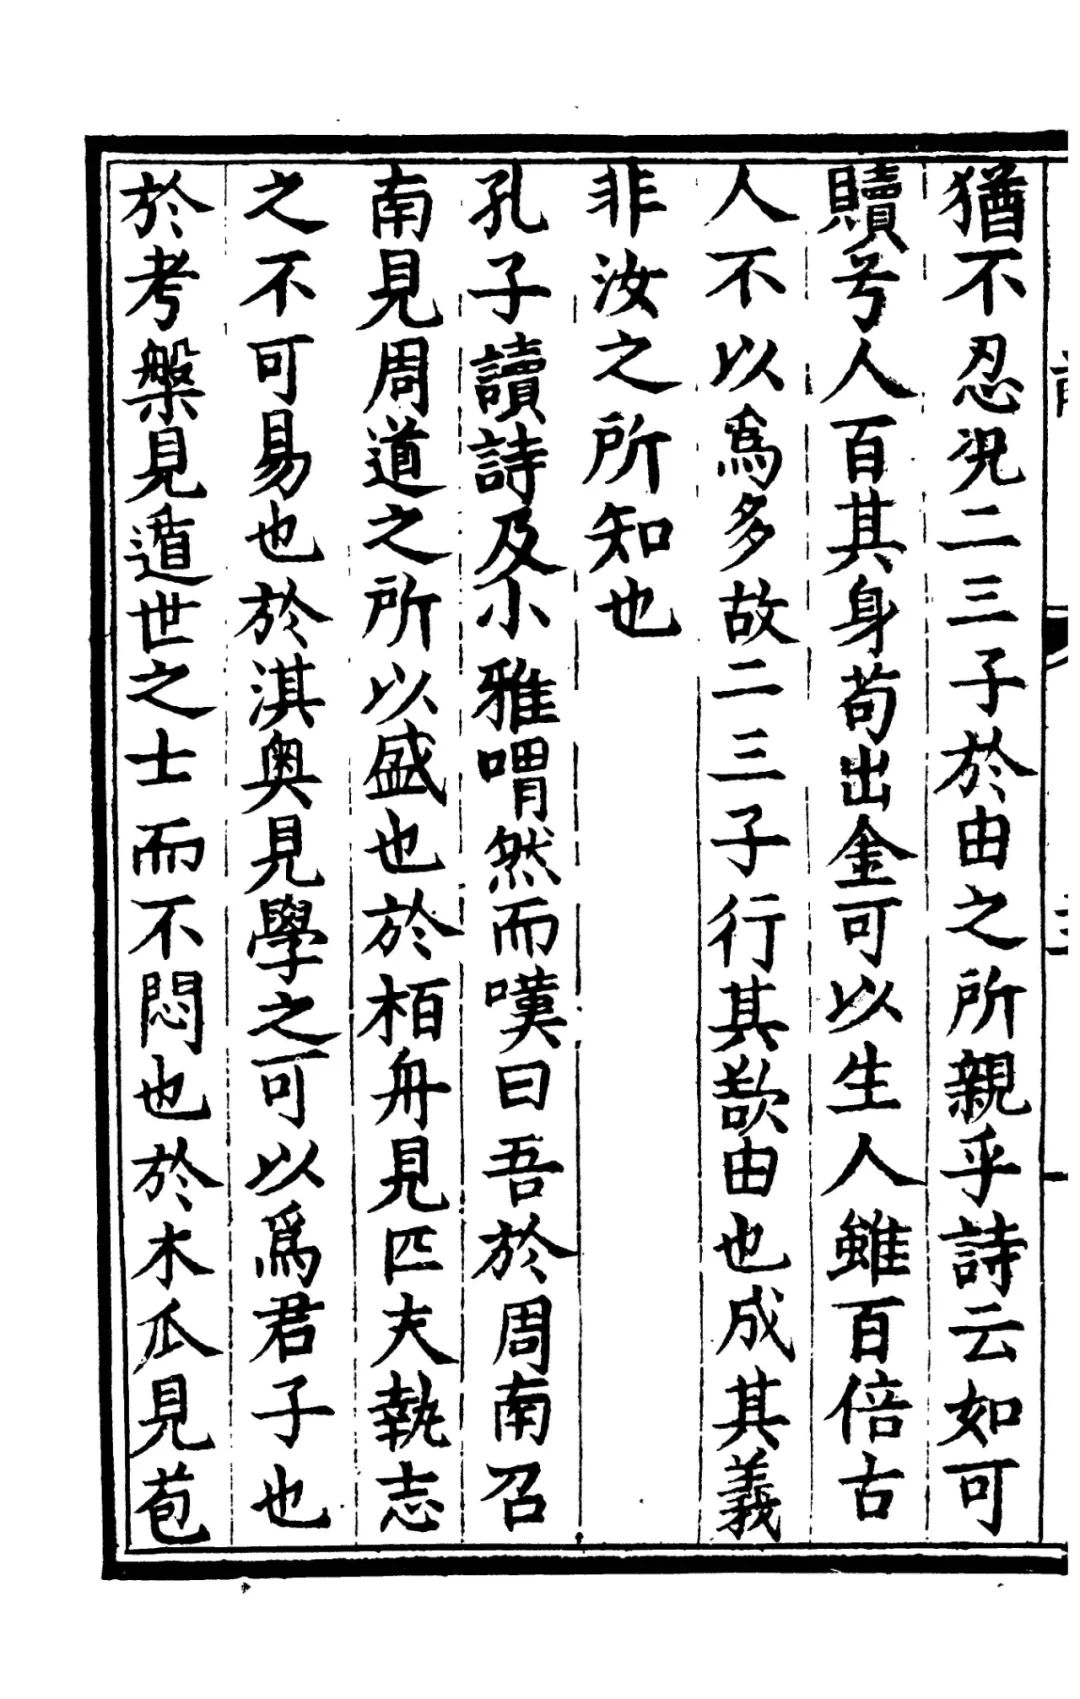 猶不忍況二三子於由之所親乎詩云如可
贖兮人百其身苟出金可以生人雖百倍古
人不以爲多故二三子行其欵由也成其義
非汝之所知也
孔子讀詩及小雅喟然而嘆曰吾於周南召
南見周道之所以盛也於栢舟見匹夫執志
之不可易也於淇奧見學之可以爲君子也
於考槃見遁世之士而不悶也於木瓜見苞